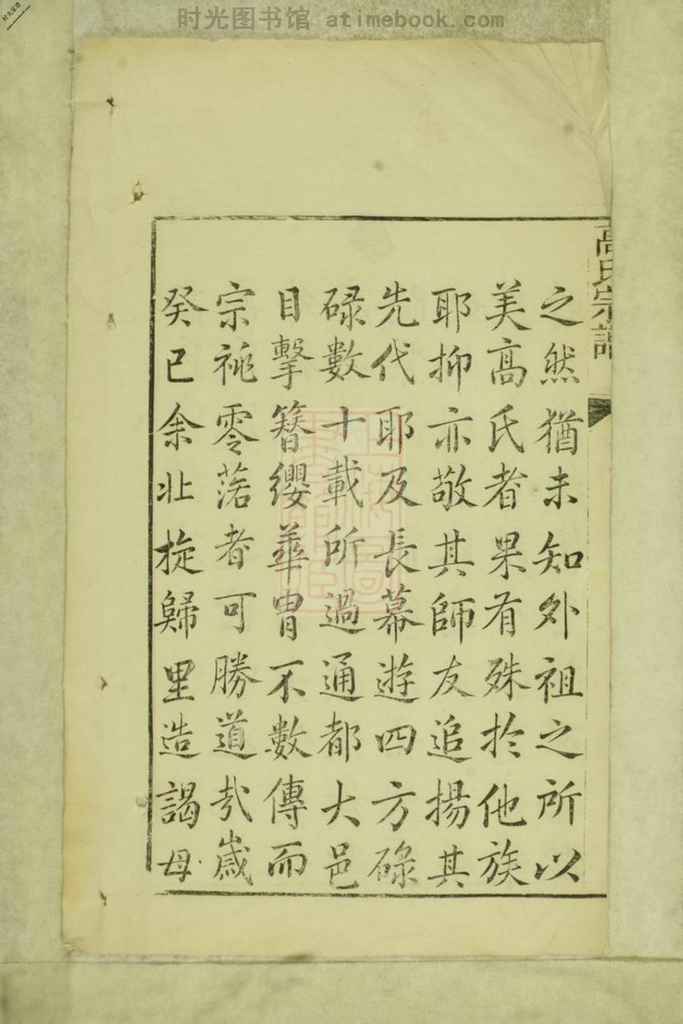 时光图书馆 atimebook.com
高氏宗譜
之然猶未知外祖之所以
美高氏者果有殊於他族
耶抑亦敬其師友追揚其
先代耶及長幕遊四方碌
碌數十載所過通都大邑
目擊簪纓華胄不數傳而
宗祧零落者可勝道哉歲
癸巳余北旋歸里造謁母